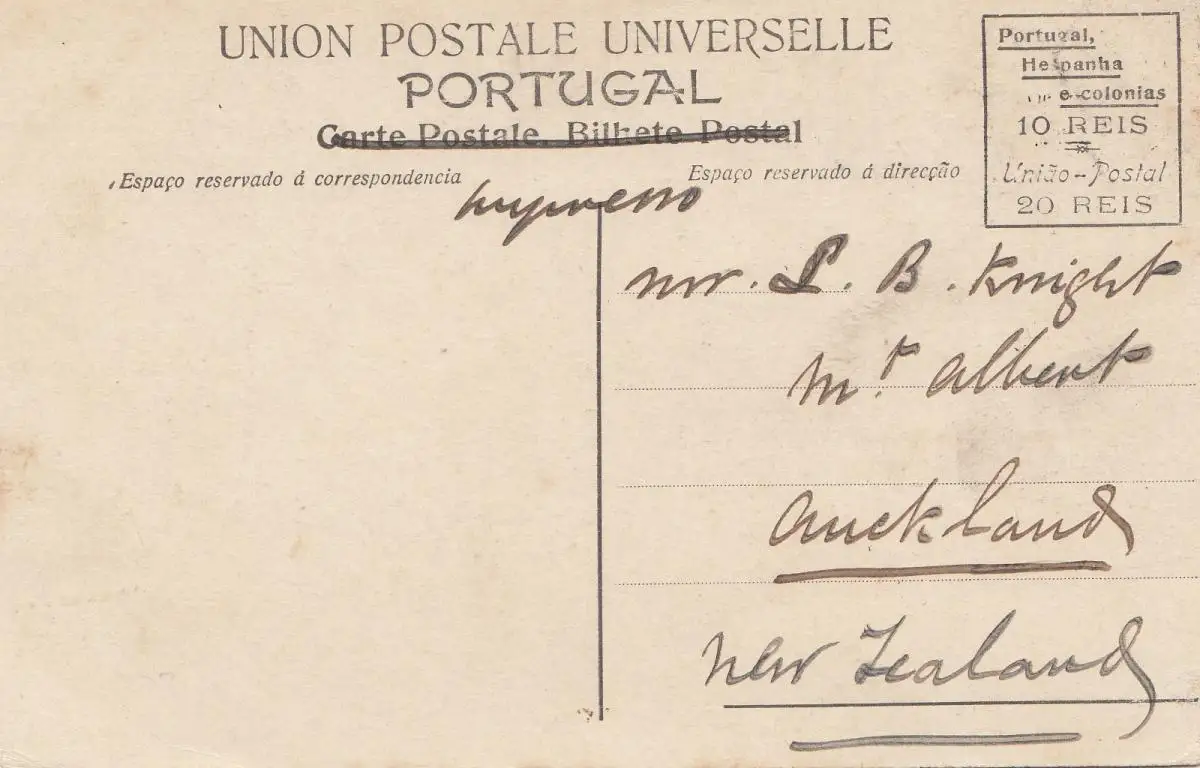 UNION POSTALE UNIVERSELLE
PORTUGAL
Carte Postale. Bilhete Postal
Espaço reservado á correspondencia
Espaço reservado á direcção
Portugal,
Hespanha
e colonias
10 REIS
União-Postal
20 REIS
Impresso
Mr. L. B. Knight
Mt. Albert
Auckland
New Zealand